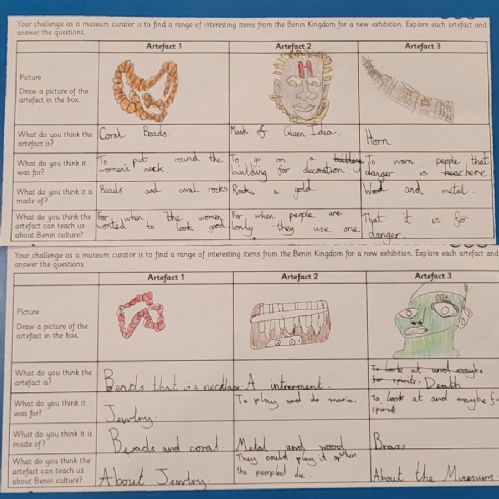 Your challenge as a museum curator is to find a range of interesting items from the Benin Kingdom for a new exhibition. Explore each artefact and
answer the questions.
Artefact 1
Artefact 2
Artefact 3
Picture
Draw a picture of the
artefact in the box.
What do you think the
artefact is?
Coral Beads.
Mask of Queen Idea.
Horn
What do you think it
was for?
To put round the
women's neck
To go on a
building for decoration
To warn people that
danger is here
What do you think it is
made of?
Beads and coral rocks
Rock a gold
Wood and metal.
What do you think the
artefact can teach us
about Benin culture?
For when the women
wanted to look good
For when people are
lonly they use one
That it is for
danger.
Your challenge as a museum curator is to find a range of interesting items from the Benin Kingdom for a new exhibition. Explore each artefact and
answer the questions.
Artefact 1
Artefact 2
Artefact 3
Picture
Draw a picture of the
artefact in the box.
What do you think the
artefact is?
Beads that is a necklace
A intrerment.
To look at and maybe
for spirits. Death
What do you think it
was for?
Jewlry.
To play and do music.
To look at and maybe for
What do you think it is
made of?
Beads and coral.
Metal and wood
Brass
What do you think the
artefact can teach us
about Benin culture?
About Jewlry
They could play it when
the peopled die.
About the Museums.